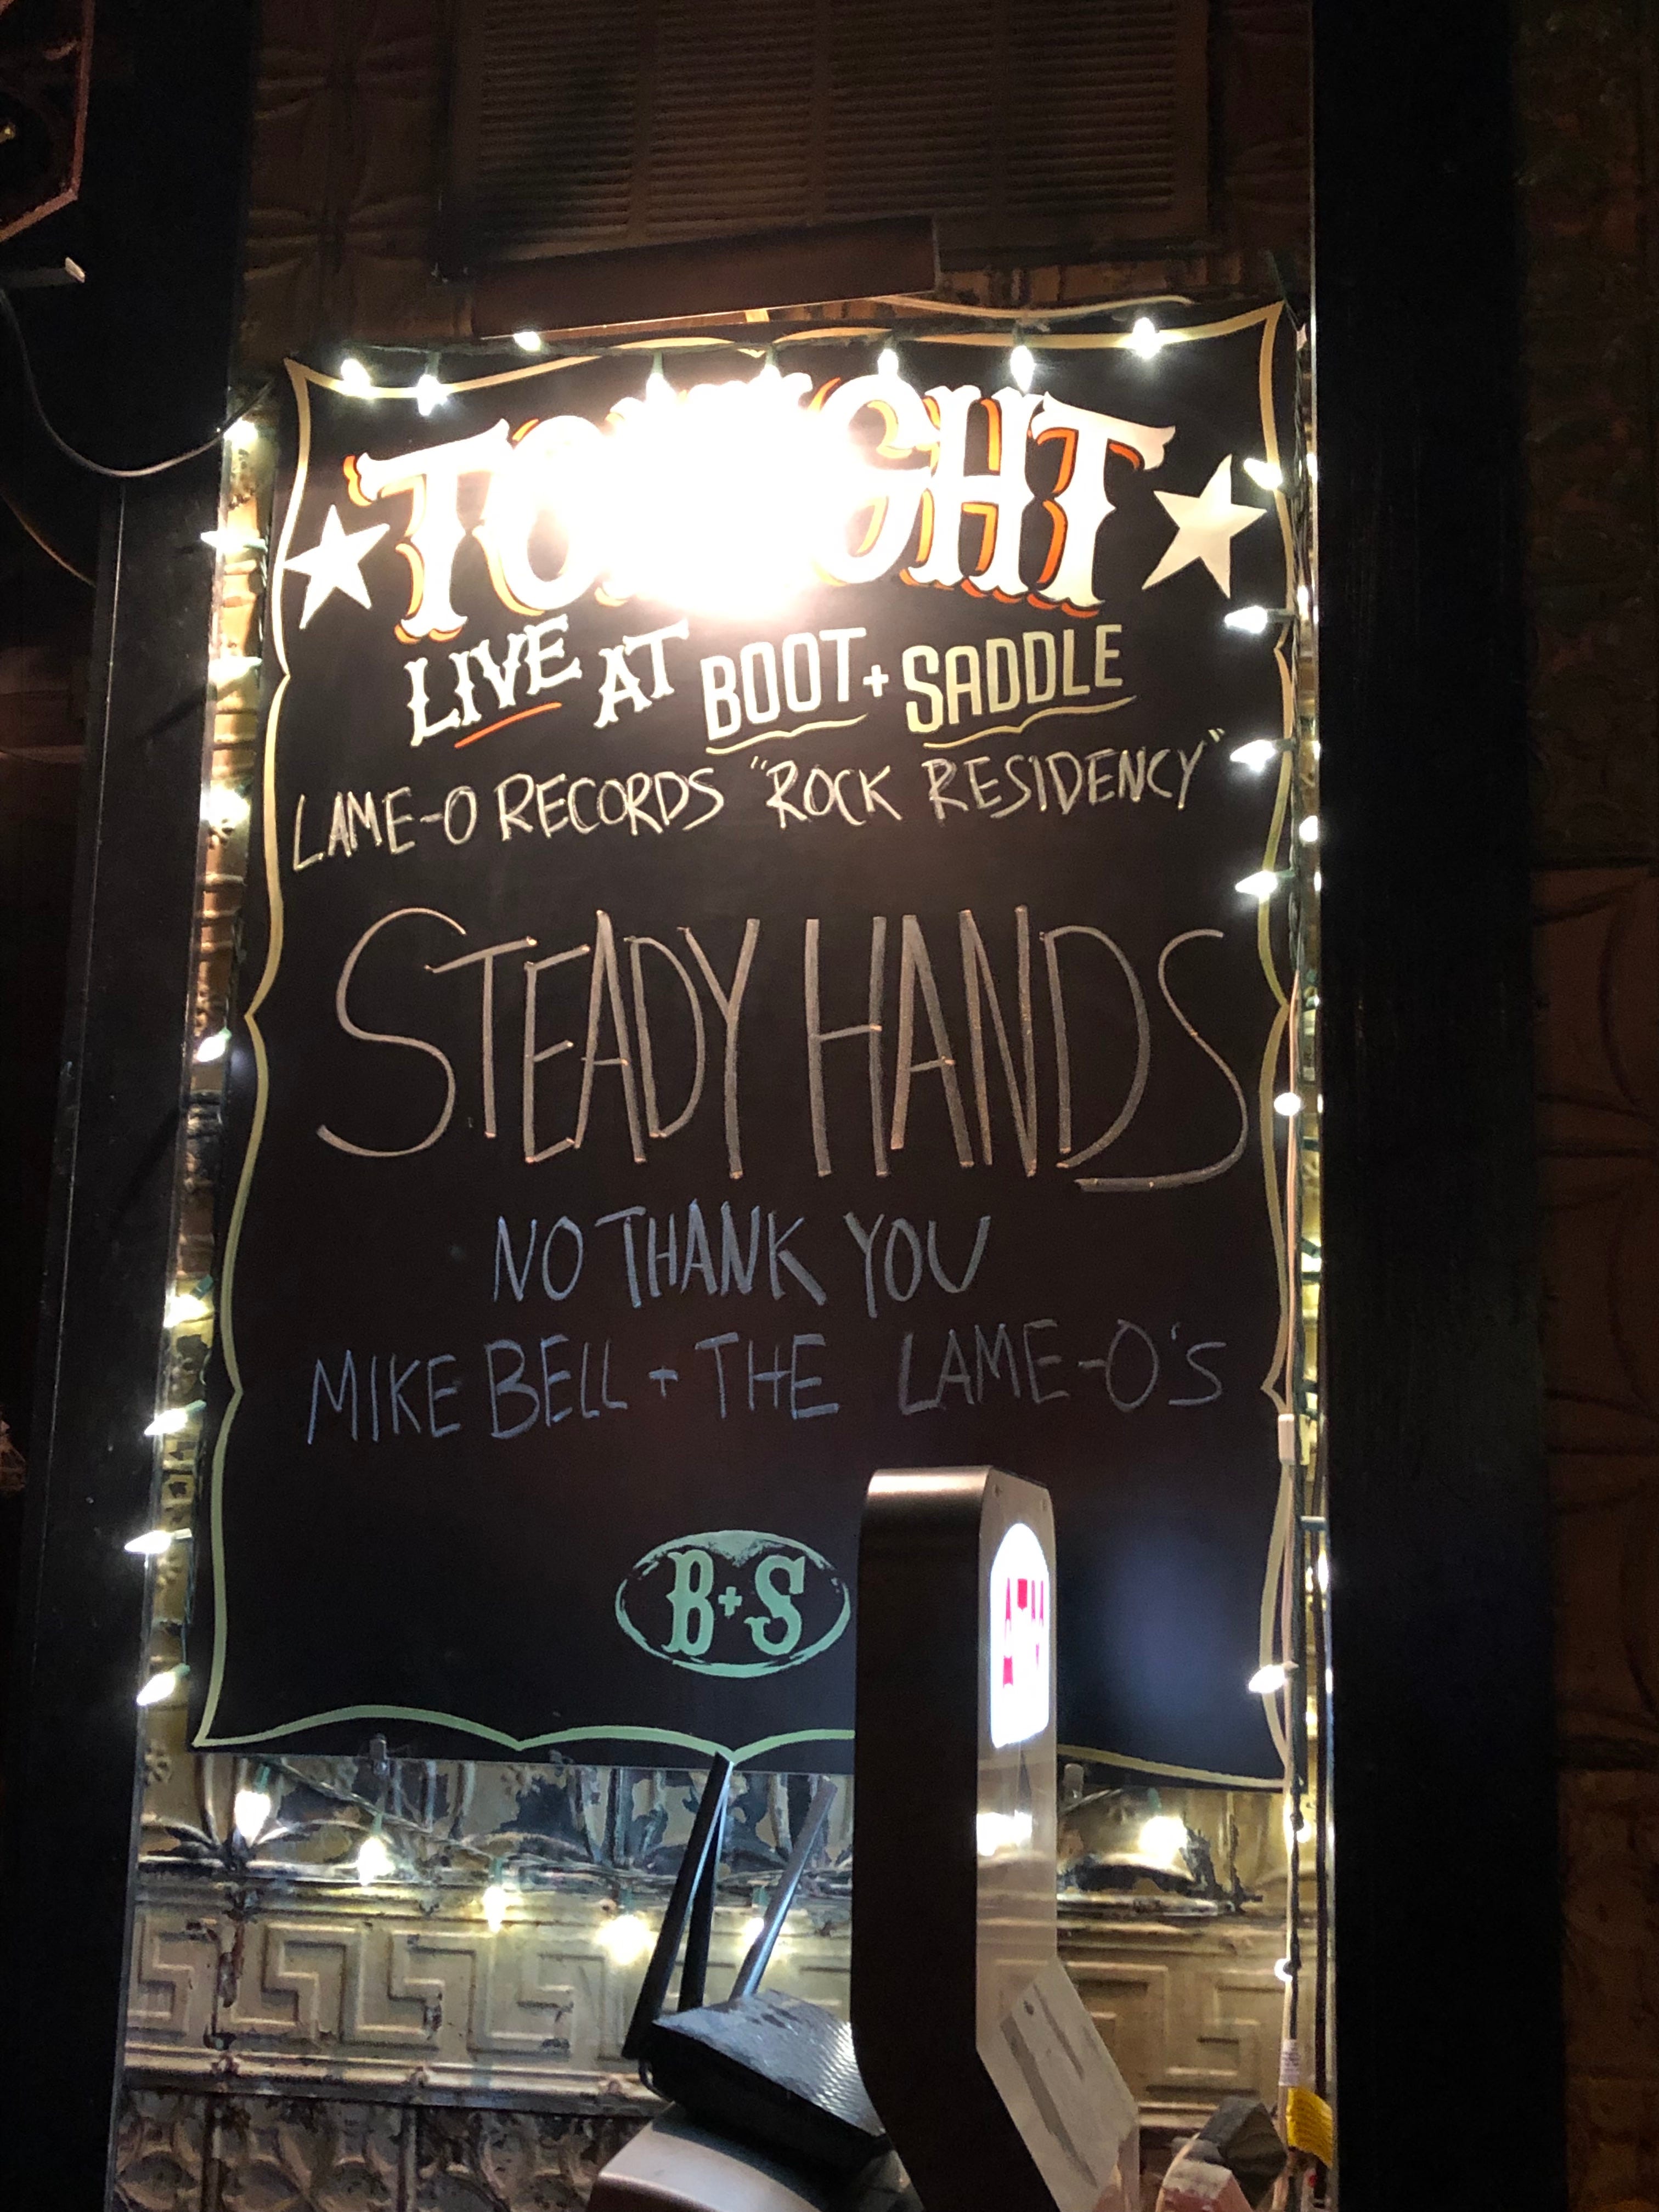 TONIGHT
LIVE AT BOOT + SADDLE
LAME-O RECORDS "ROCK RESIDENCY"
STEADY HANDS
NO THANK YOU
MIKE BELL + THE LAME-O'S
B+S
ATM